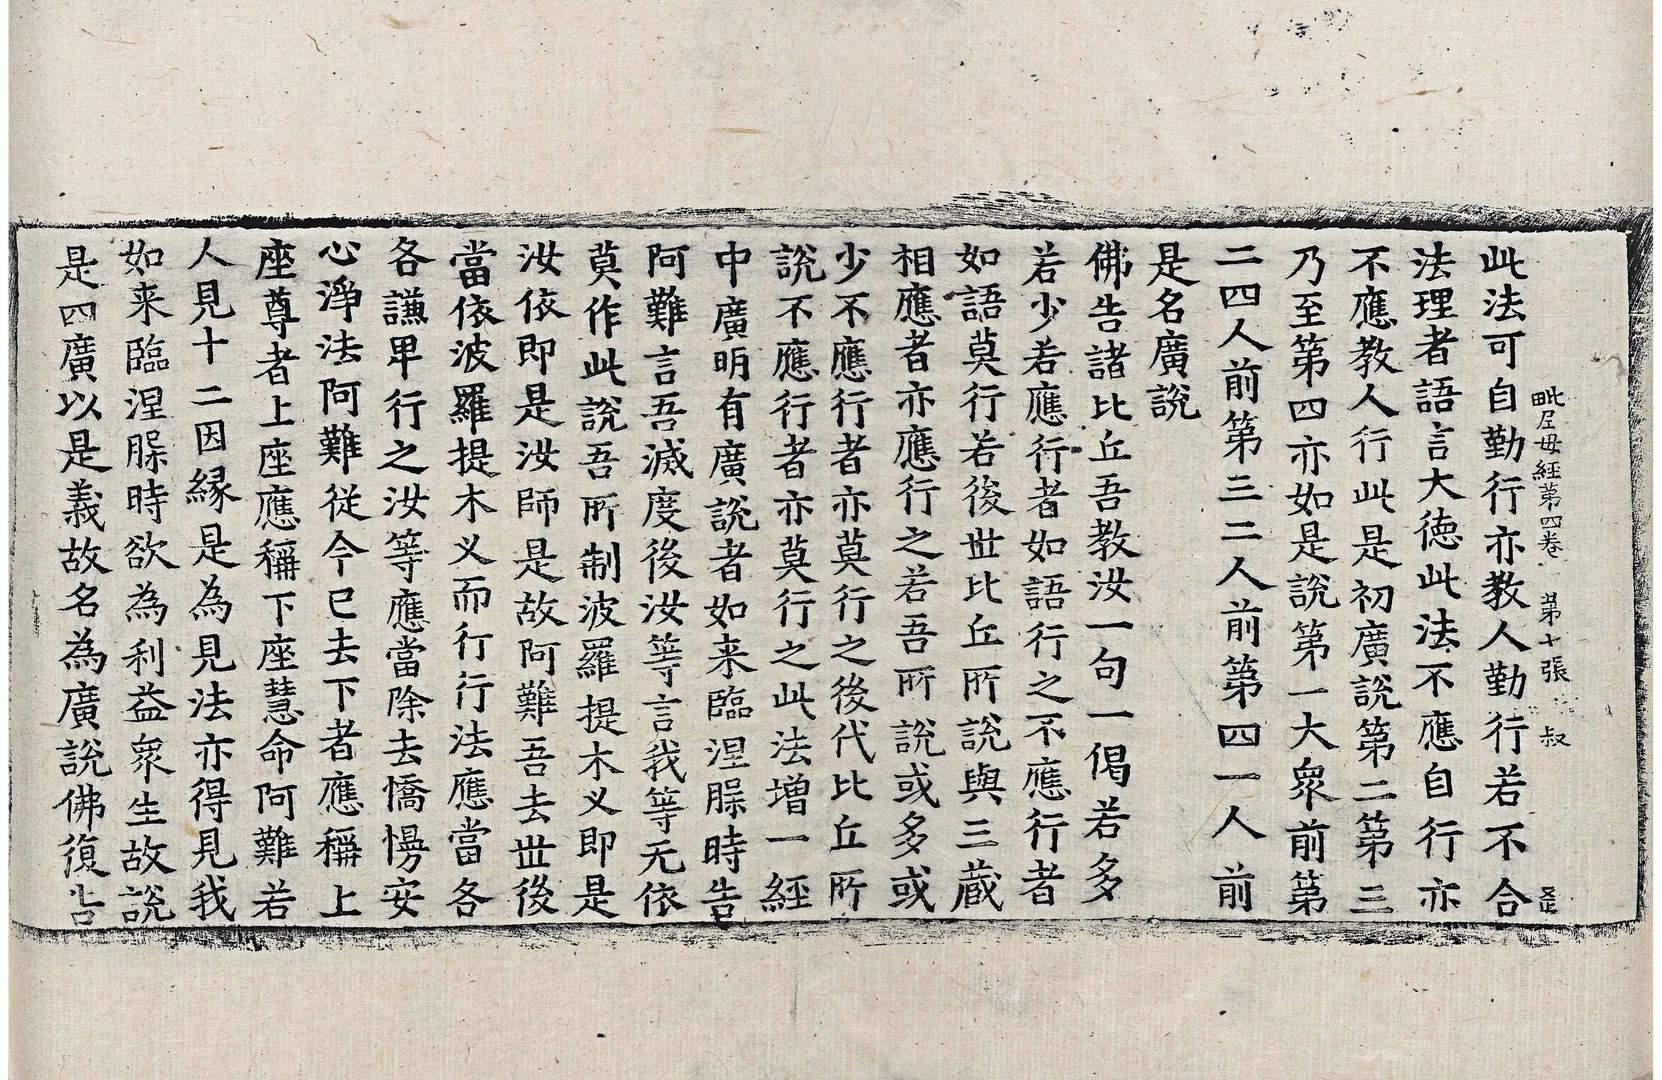 毗尼母經第四卷　第十張　叔
此法可自勤行亦教人勤行若不合
法理者語言大德此法不應自行亦
不應教人行此是初廣說第二第三
乃至第四亦如是說第一大衆前第
二四人前第三二人前第四一人前
是名廣說
佛告諸比丘吾教汝一句一偈若多
若少若應行者如語行之不應行者
如語莫行若後世比丘所說與三藏
相應者亦應行之若吾所說或多或
少不應行者亦莫行之後代比丘所
說不應行者亦莫行之此法增一經
中廣明有廣說者如来臨涅槃時告
阿難言吾滅度後汝等言我等无依
莫作此說吾所制波羅提木义即是
汝依即是汝師是故阿難吾去世後
當依波羅提木义而行行法應當各
各謙卑行之汝等應當除去憍慢安
心淨法阿難從今已去下者應稱上
座尊者上座應稱下座慧命阿難若
人見十二因緣是為見法亦得見我
如来臨涅槃時欲為利益衆生故說
是四廣以是義故名為廣說佛復告